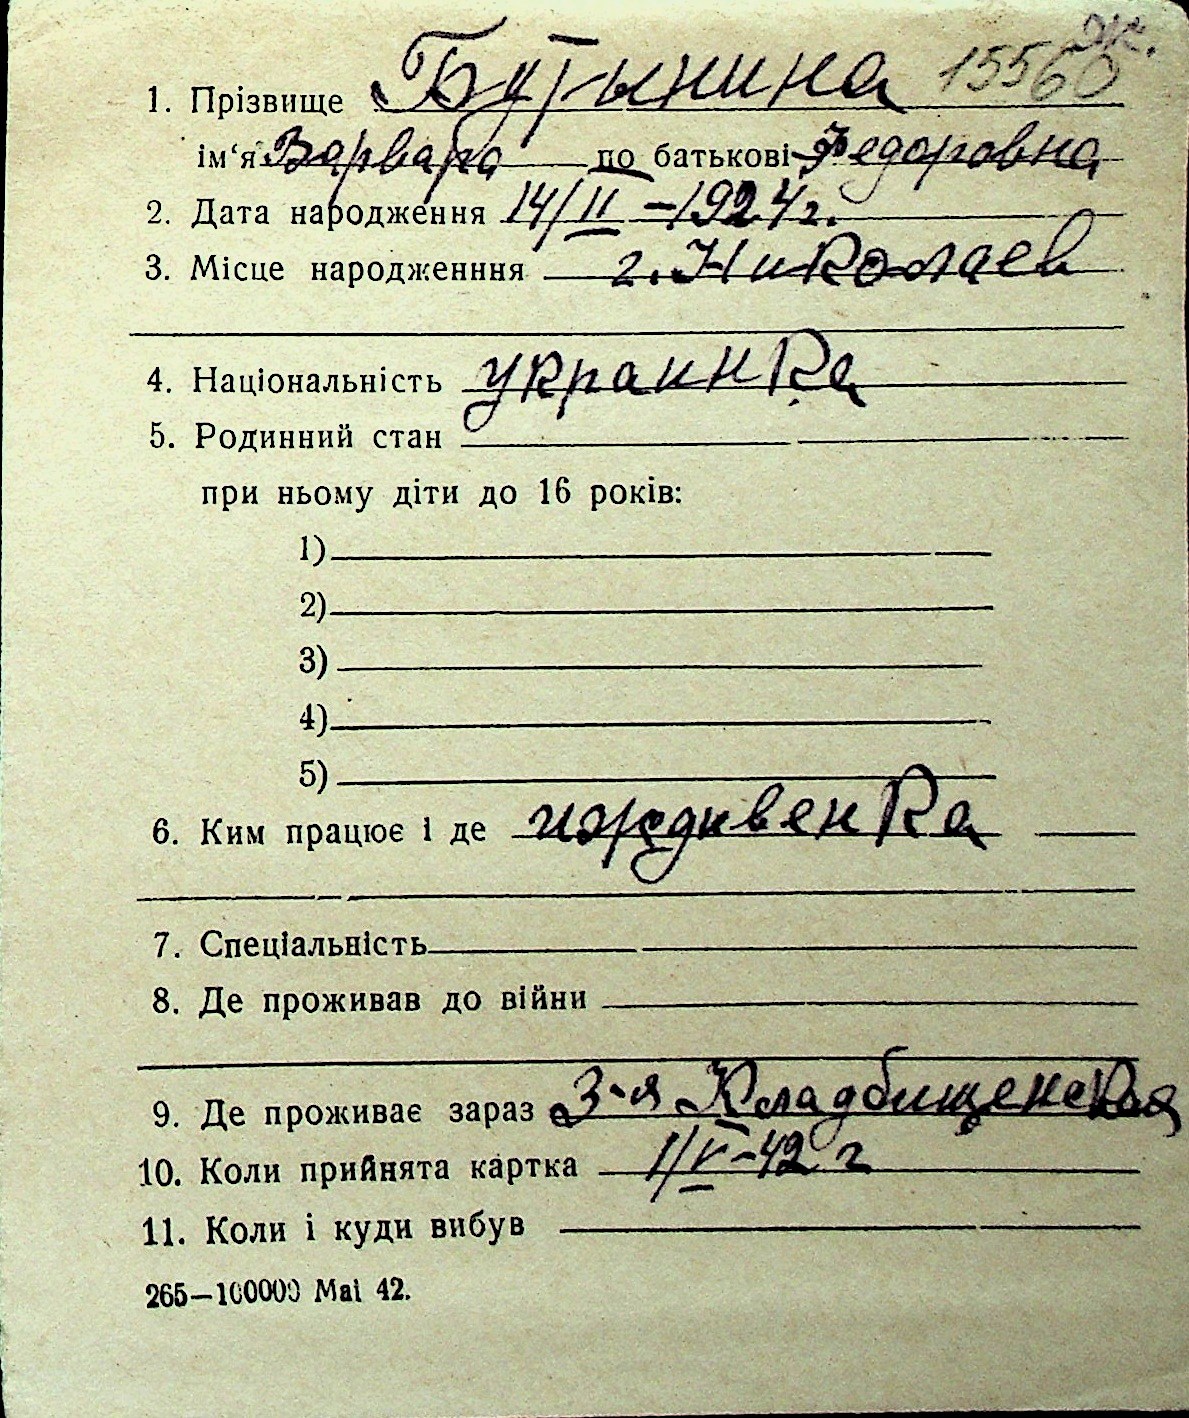 Ж.
1. Прізвище Бутынина 15560
ім‘я Варвара по батькові Федоровна
2. Дата народження 14/II – 1924 г.
3. Місце народженння г. Николаев
4. Національність украинка
5. Родинний стан
при ньому діти до 16 років:
1)
2)
3)
4)
5)
6. Ким працює і де иждивенка
7. Спеціальність
8. Де проживав до війни
9. Де проживає зараз 3-я Кладбищенская
10. Коли прийнята картка 1/V-42 г
11. Коли і куди вибув
265—100000 Mai 42.